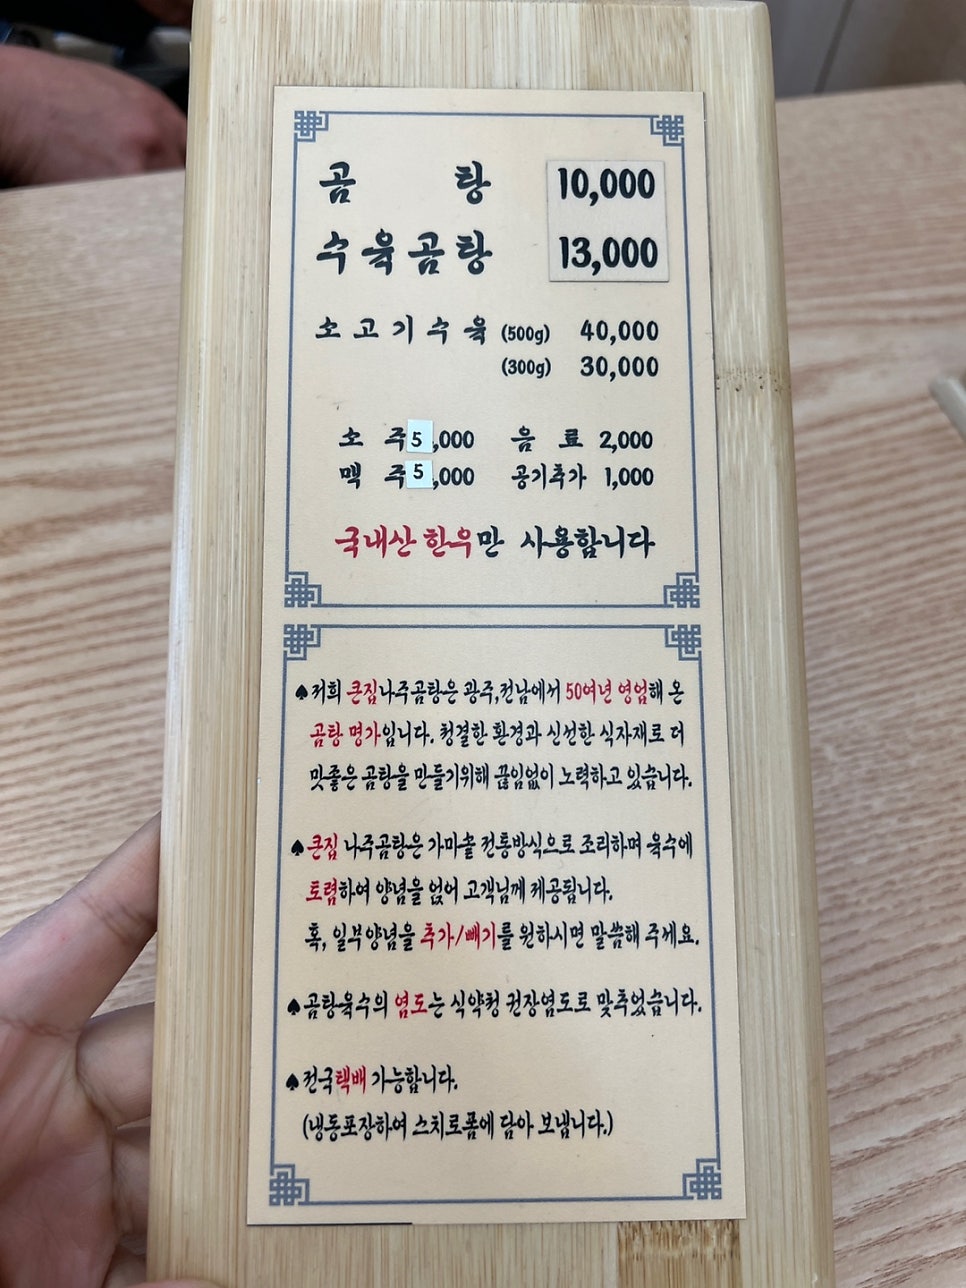 곰 탕 10,000
수육곰탕 13,000
소고기수육 (500g) 40,000
(300g) 30,000
소 주 5,000 음 료 2,000
맥 주 5,000 공기추가 1,000
국내산 한우만 사용합니다
♠저희 큰집나주곰탕은 광주,전남에서 50여년 영업해 온
곰탕 명가입니다. 청결한 환경과 신선한 식자재로 더
맛좋은 곰탕을 만들기위해 끊임없이 노력하고 있습니다.
♠큰집 나주곰탕은 가마솥 전통방식으로 조리하며 육수에
토렴하여 양념을 얹어 고객님께 제공됩니다.
혹, 일부양념을 추가/빼기를 원하시면 말씀해 주세요.
♠곰탕육수의 염도는 식약청 권장염도로 맞추었습니다.
♠전국택배 가능합니다.
(냉동포장하여 스치로폼에 담아 보냅니다.)